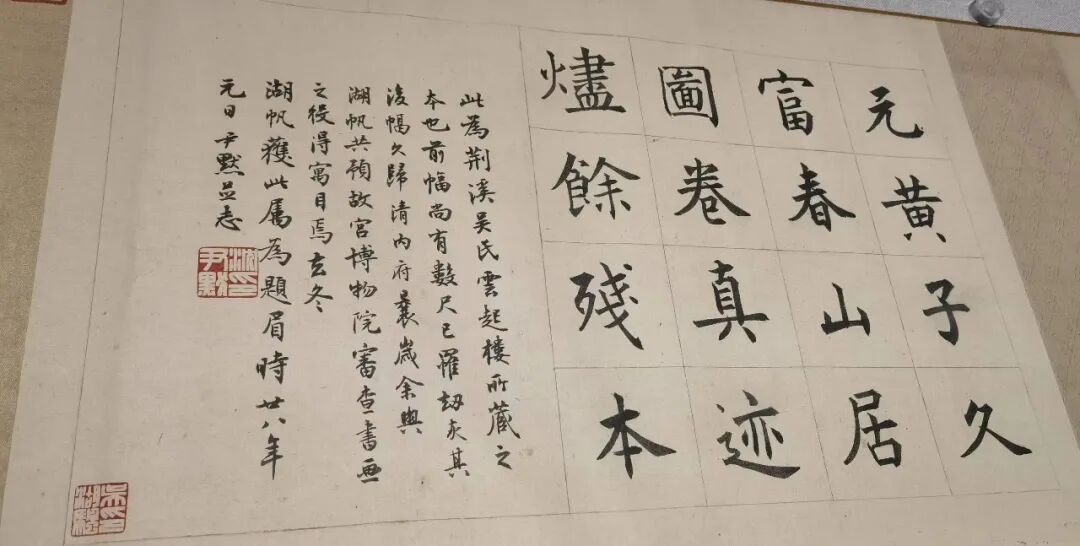 元黄子久
富春山居
圖卷真迹
燼餘殘本
此為荆溪吴氏雲起樓所藏之
本也前幅尚有數尺已罹劫灰其
後幅久歸清内府曩歲余與
湖帆共預故宫博物院審查書画
之役得寓目焉去冬
湖帆獲此属為題眉時廿八年
元日尹默并志
沈尹默印